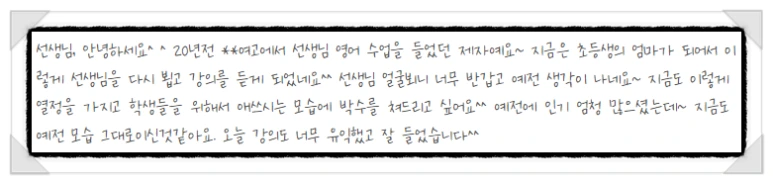 선생님, 안녕하세요^ ^ 20년전 **여고에서 선생님 영어 수업을 들었던 제자예요~ 지금은 초등생의 엄마가 되어서 이
렇게 선생님을 다시 뵙고 강의를 듣게 되었네요^^ 선생님 얼굴뵈니 너무 반갑고 예전 생각이 나네요~ 지금도 이렇게
열정을 가지고 학생들을 위해서 애쓰시는 모습에 박수를 쳐드리고 싶어요^^ 예전에 인기 엄청 많으셨는데~ 지금도
예전 모습 그대로이신것같아요. 오늘 강의도 너무 유익했고 잘 들었습니다^^